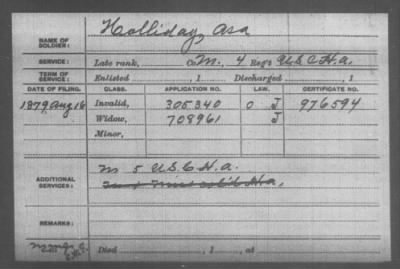 NAME OF SOLDIER: Holliday, Asa
SERVICE: Late rank, Co. M., 4 Reg't U.S.C.H.A.
TERM OF SERVICE: Enlisted , 1 Discharged , 1
DATE OF FILING. CLASS. APPLICATION NO. LAW. CERTIFICATE NO.
1879 Aug 16 Invalid, 305340 O J 976594
Widow, 708961 J
Minor,
M 5 U.S.C.H.A.
ADDITIONAL SERVICES: H.A.
REMARKS:
Died , 1 , at